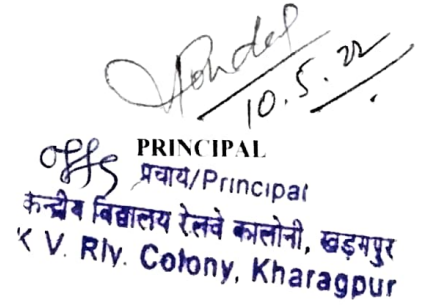 10.5.22
PRINCIPAL
offg प्रचार्य/Principal
केन्द्रीय विद्यालय रेलवे कालोनी, खड़गपुर
K V. Rly. Colony, Kharagpur